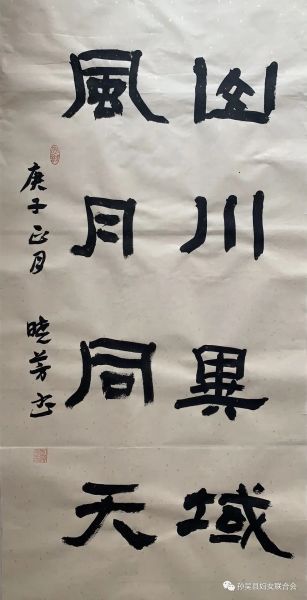 山川異域
風月同天
庚子正月 曉芳书
孙吴县妇女联合会